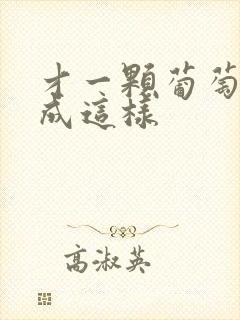 才一顆葡萄
成這樣
高淑英